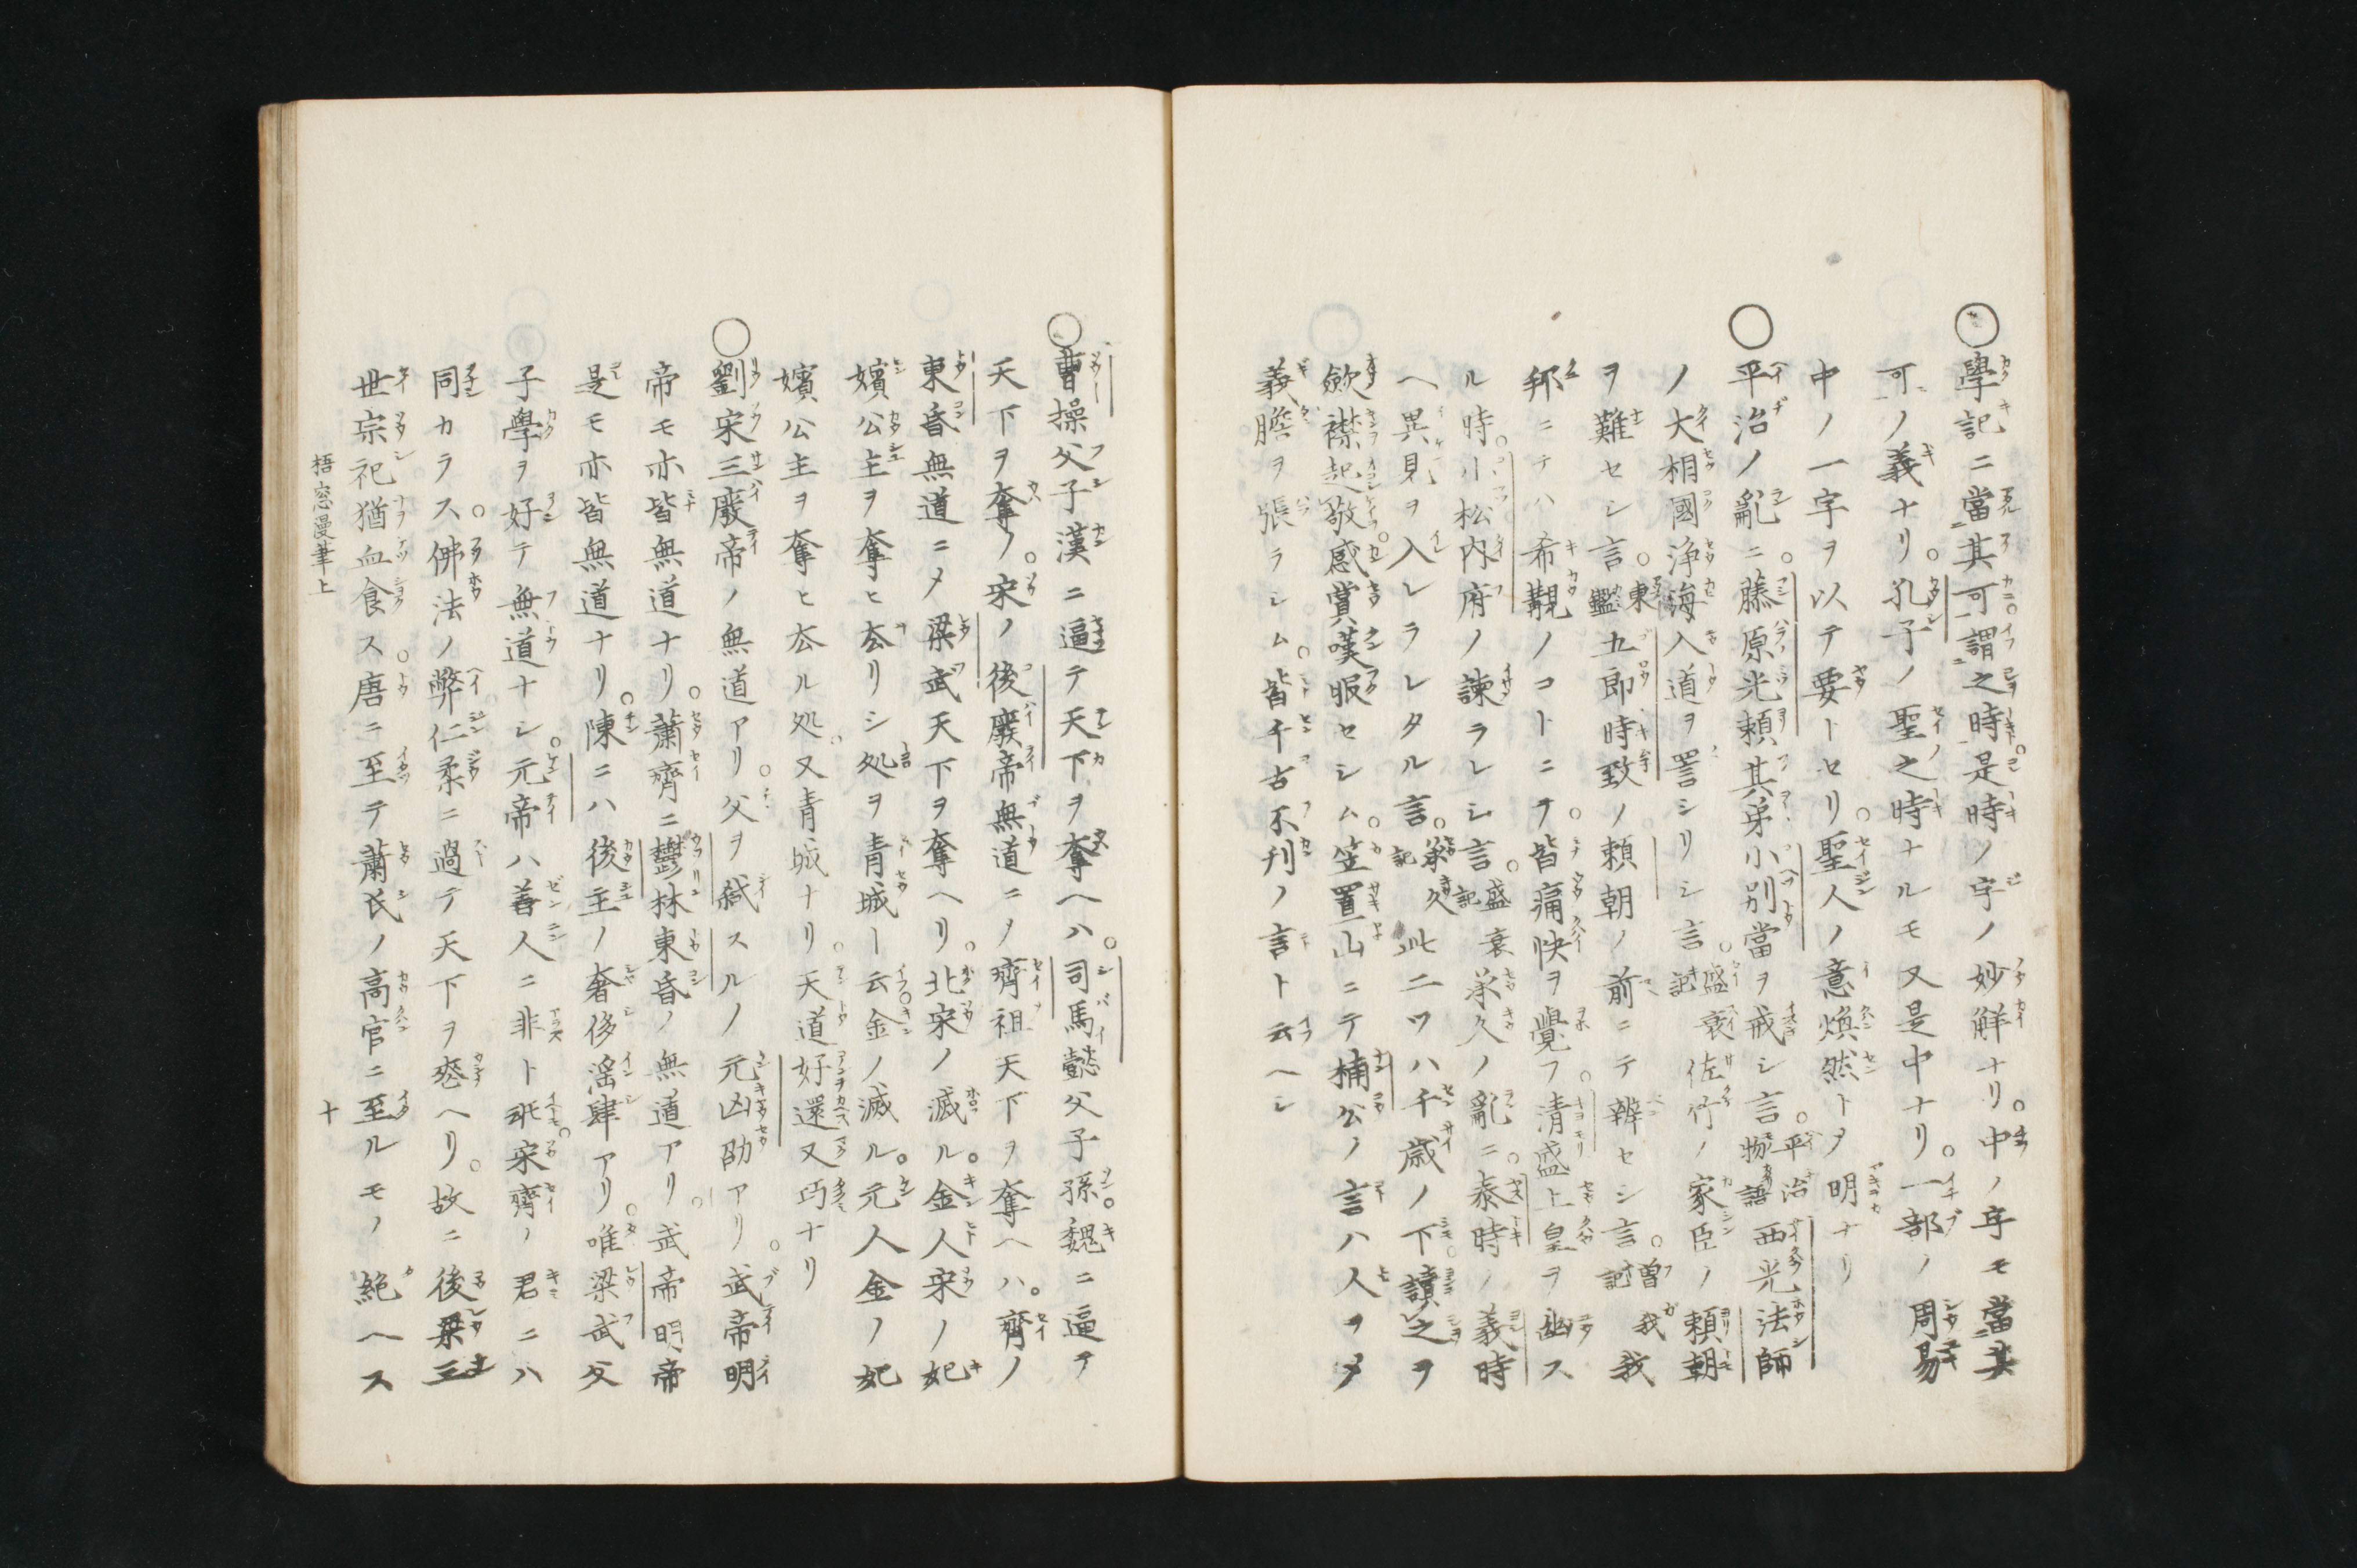 ○學記ニ當其可謂之時是時ノ字ノ妙解ナリ。中ノ字モ當其
可ノ義ナリ。孔子ノ聖之時ナルモ又是中ナリ。一部ノ周易
中ノ一字ヲ以テ要トセリ。聖人ノ意煥然トメ明ナリ
○平治ノ亂ニ。藤原光頼其弟小別當ヲ戒シ言。平治物語西光法師
ノ大相國浄海入道ヲ詈シリシ言。盛衰記佐竹ノ家臣ノ頼朝
ヲ難セシ言。東鑑五郎時致ノ頼朝ノ前ニテ辨セシ言。曽我記我
邦ニテハ希覯ノコトニテ。皆痛快ヲ覺フ。清盛上皇ヲ幽ス
ル時。小松内府ノ諫ラレシ言。盛衰記承久ノ亂ニ。泰時ノ義時
ヘ異見ヲ入レラレタル言。承久記此二ツハ千歳ノ下。讀之ヲ
歛襟起敬。感賞嘆服セシム。笠置山ニテ楠公ノ言ハ人ヲメ
義膽ヲ張ラシム。皆千古不刋ノ言ト云ヘシ
○曹操父子漢ニ逼テ天下ヲ奪ヘハ。司馬懿父子孫。魏ニ逼テ
天下ヲ奪ノ。宋ノ後廢帝無道ニメ齊祖天下ヲ奪ヘハ。齊ノ
東昏無道ニメ梁武天下ヲ奪ヘリ。北宋ノ滅ル。金人宋ノ妃
嬪公主ヲ奪ヒ去リシ処ヲ青城ト云。金ノ滅ル。元人金ノ妃
嬪公主ヲ奪ヒ去ル処。又青城ナリ。天道好還又巧ナリ
○劉宋三廢帝ノ無道アリ。父ヲ弑スルノ元凶劭アリ。武帝明
帝モ亦皆無道ナリ。蕭齊ニ鬱林東昏ノ無道アリ。武帝明帝
是モ亦皆無道ナリ。陳ニハ後主ノ奢侈滛肆アリ。唯梁武父
子學ヲ好テ無道ナシ。元帝ハ善人ニ非ト𫆀。宋齊ノ君ニハ
同カラス。佛法ノ弊仁柔ニ過テ天下ヲ喪ヘリ。故ニ後梁三
世宗祀猶血食ス。唐ニ至テ蕭氏ノ高官ニ至ルモノ絶ヘス
梧窓漫筆上　十